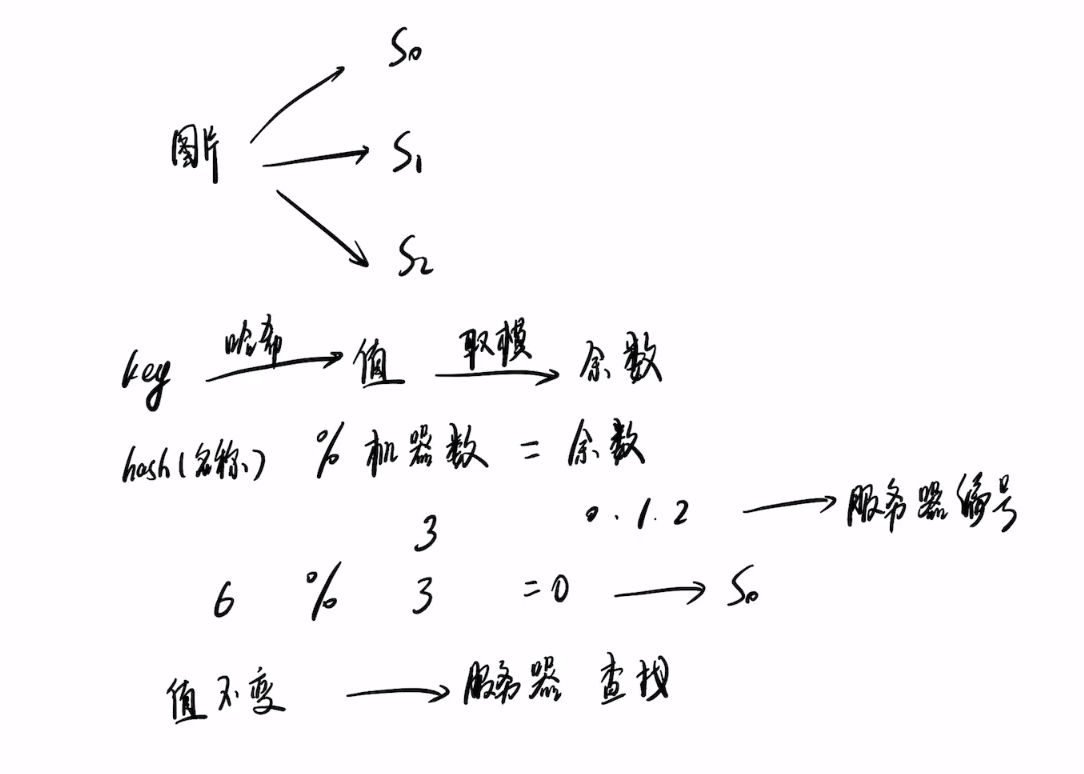 S0
图片
S1
S2
key 哈希 值 取模 余数
hash(名称) % 机器数 = 余数
3 0.1.2 服务器编号
6 % 3 =0 S0
值不变 服务器 查找